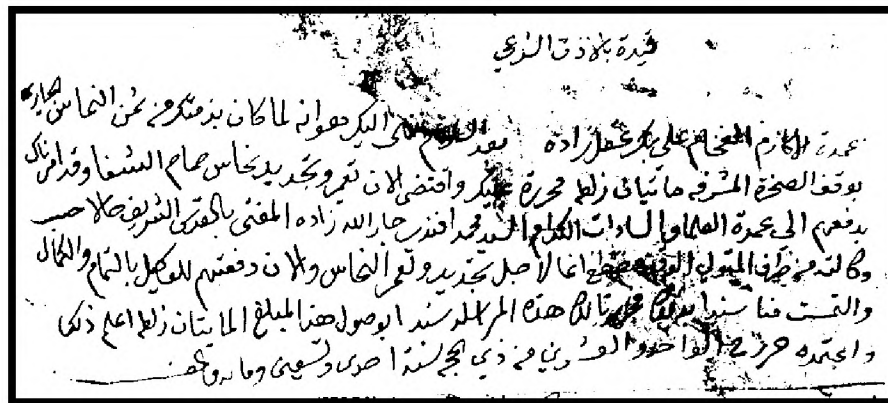 قيدة بالاذن الشرعي
عمدة المفخام علي بك غفل زاده بعد السلام اليكم هو انه لما كان بذمتكم من ثمن النحاس
بوقف الصخرة المشرفه مائتيان زلطه محررة عليكم واقتضى الان تعمير وتجديد نحاس حمام الشفا وقد
بدفعهم الى عمدة العلما والسادات الكرام السيد محمد افندي جار الله زاده المفتي بالقدس الشريف حالا حسب
وكالته من طرف المتولي لاجل تجديد وتعمير النحاس والان دفعتهم للوكيل بالتمام والكمال
والتمست منا سندا هذه المراسله سندا بوصول هذا المبلغ المايتان زلطه اعلم ذلك
واعتمده حرر في الواحد والعشرين من ذي الحجه لسنة احدى وتسعين ومايه والف